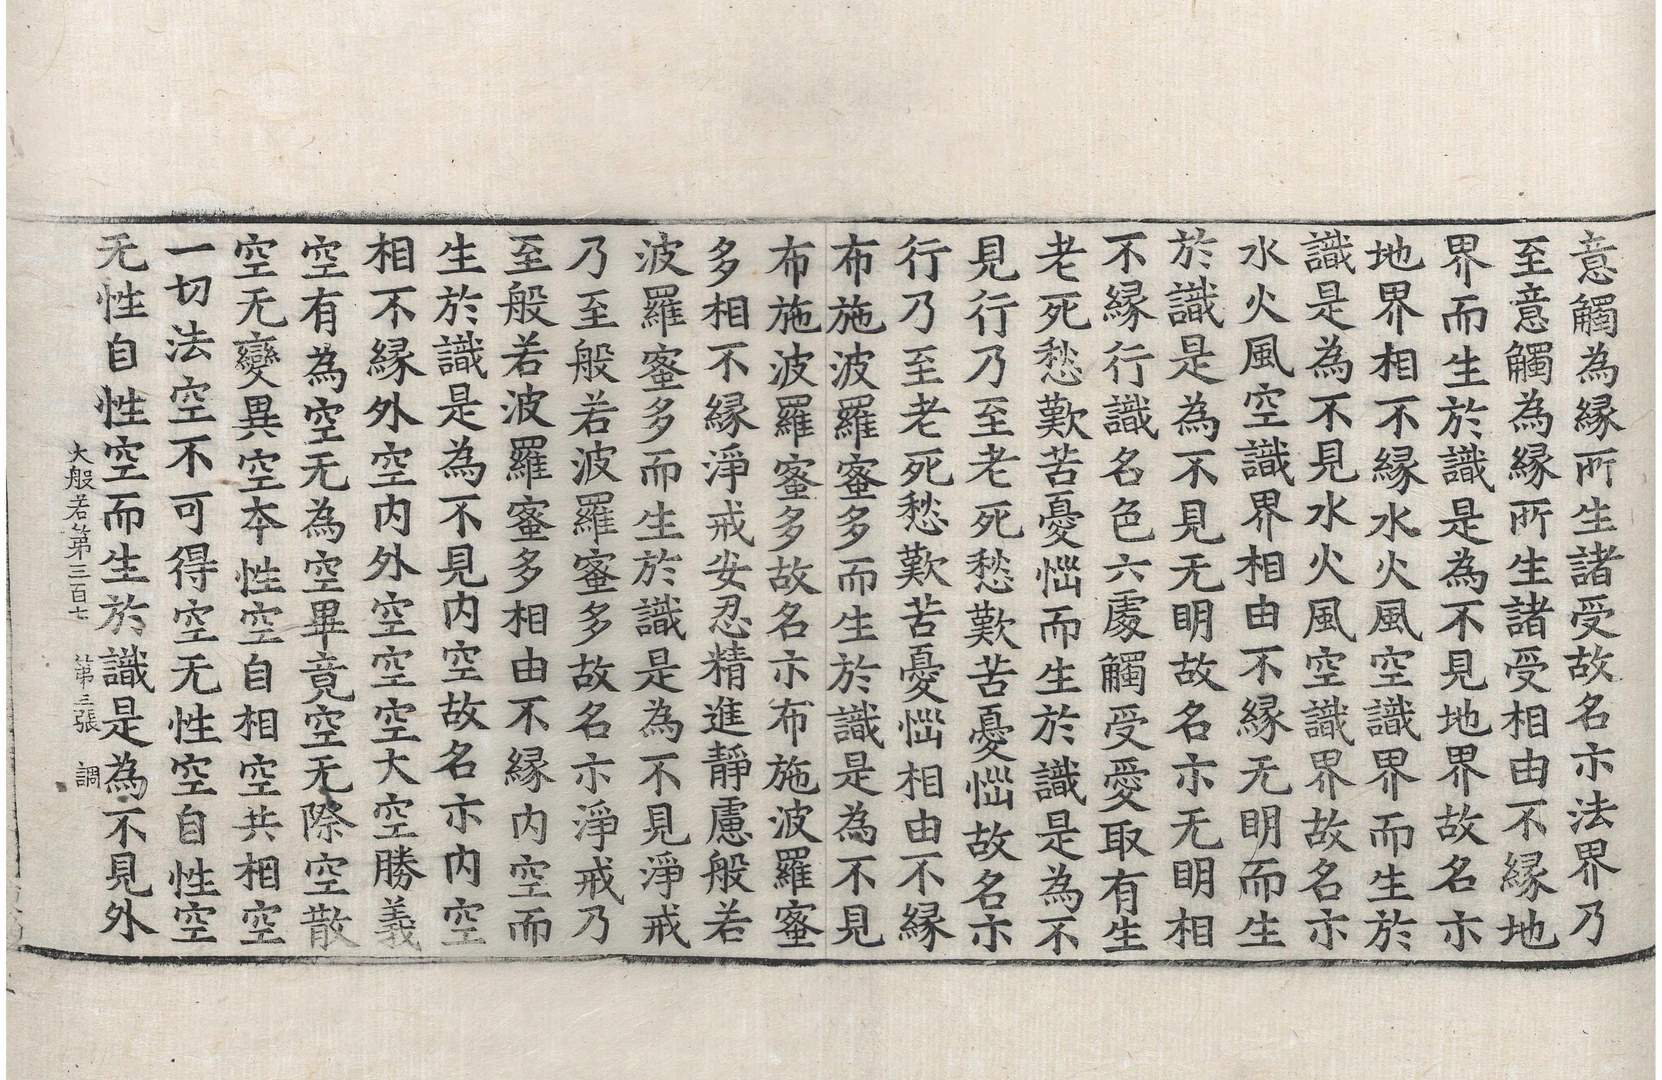 意觸為縁所生諸受故名亦法界乃
至意觸為縁所生諸受相由不縁地
界而生於識是為不見地界故名亦
地界相不縁水火風空識界而生於
識是為不見水火風空識界故名亦
水火風空識界相由不縁无明而生
於識是為不見无明故名亦无明相
不縁行識名色六處觸受愛取有生
老死愁歎苦憂惱而生於識是為不
見行乃至老死愁歎苦憂惱故名亦
行乃至老死愁歎苦憂惱相由不縁
布施波羅蜜多而生於識是為不見
布施波羅蜜多故名亦布施波羅蜜
多相不縁淨戒安忍精進靜慮般若
波羅蜜多而生於識是為不見淨戒
乃至般若波羅蜜多故名亦淨戒乃
至般若波羅蜜多相由不縁内空而
生於識是為不見内空故名亦内空
相不縁外空内外空空空大空勝義
空有為空无為空畢竟空无際空散
空无變異空本性空自相空共相空
一切法空不可得空无性空自性空
无性自性空而生於識是為不見外
大般若第三百七 第三張 調